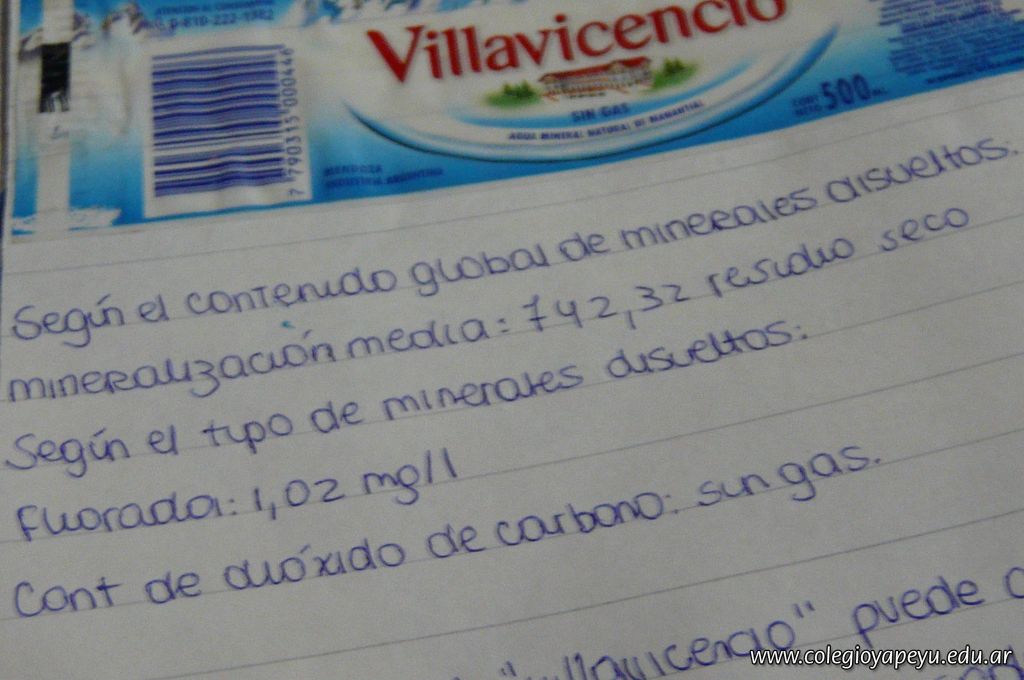 0-810-222-1882
Villavicencio
SIN GAS
AGUA MINERAL NATURAL DE MANANTIAL
CONT. NETO 500
7 790315 000446
MENDOZA
INDUSTRIA ARGENTINA
Según el contenido global de minerales disueltos.
mineralización media: 742,32 residuo seco
Según el tipo de minerales disueltos:
Fluorada: 1,02 mg/l
Cont de dióxido de carbono: sin gas.
"Villavicencio" puede
www.colegioyapeyu.edu.ar